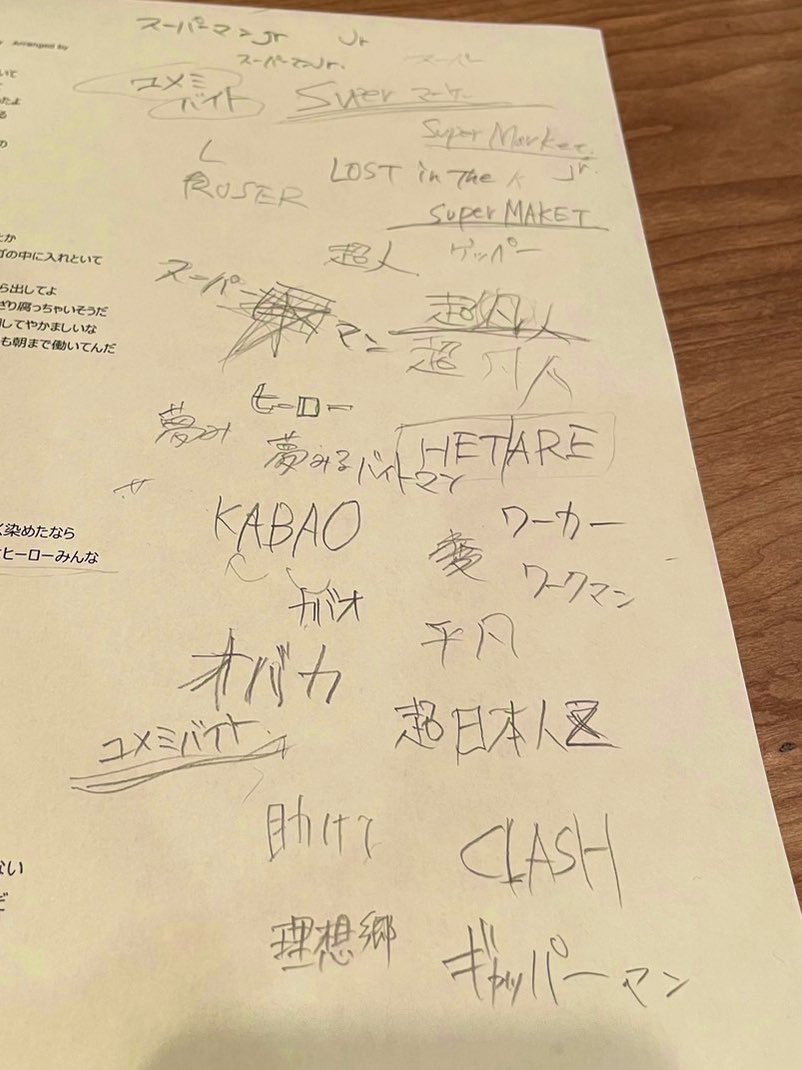 Arranged by
スーパーマンJr Jr
スーパーマンJr. スーパー
ユメミ
バイト
Super マーケー
Super Market
Jr.
L
ROSER
LOST in The K
Super MAKET
超人 ゲッパー
スーパー マン
超凡人
超凡人
ヒーロー
夢み
夢みるバイトマン
HETARE
サ
KABAO
ワーカー
ワークマン
カバオ
平凡
オバカ
超日本人
ユメミバイト
助けて
CLASH
理想郷
ギャッパーマン
いて
たよ
る
の
とか
ゴの中に入れといて
ら出してよ
ぎり腐っちゃいそうだ
してやかましいな
も朝まで働いてんだ
く染めたなら
ヒーローみんな
ない
だ